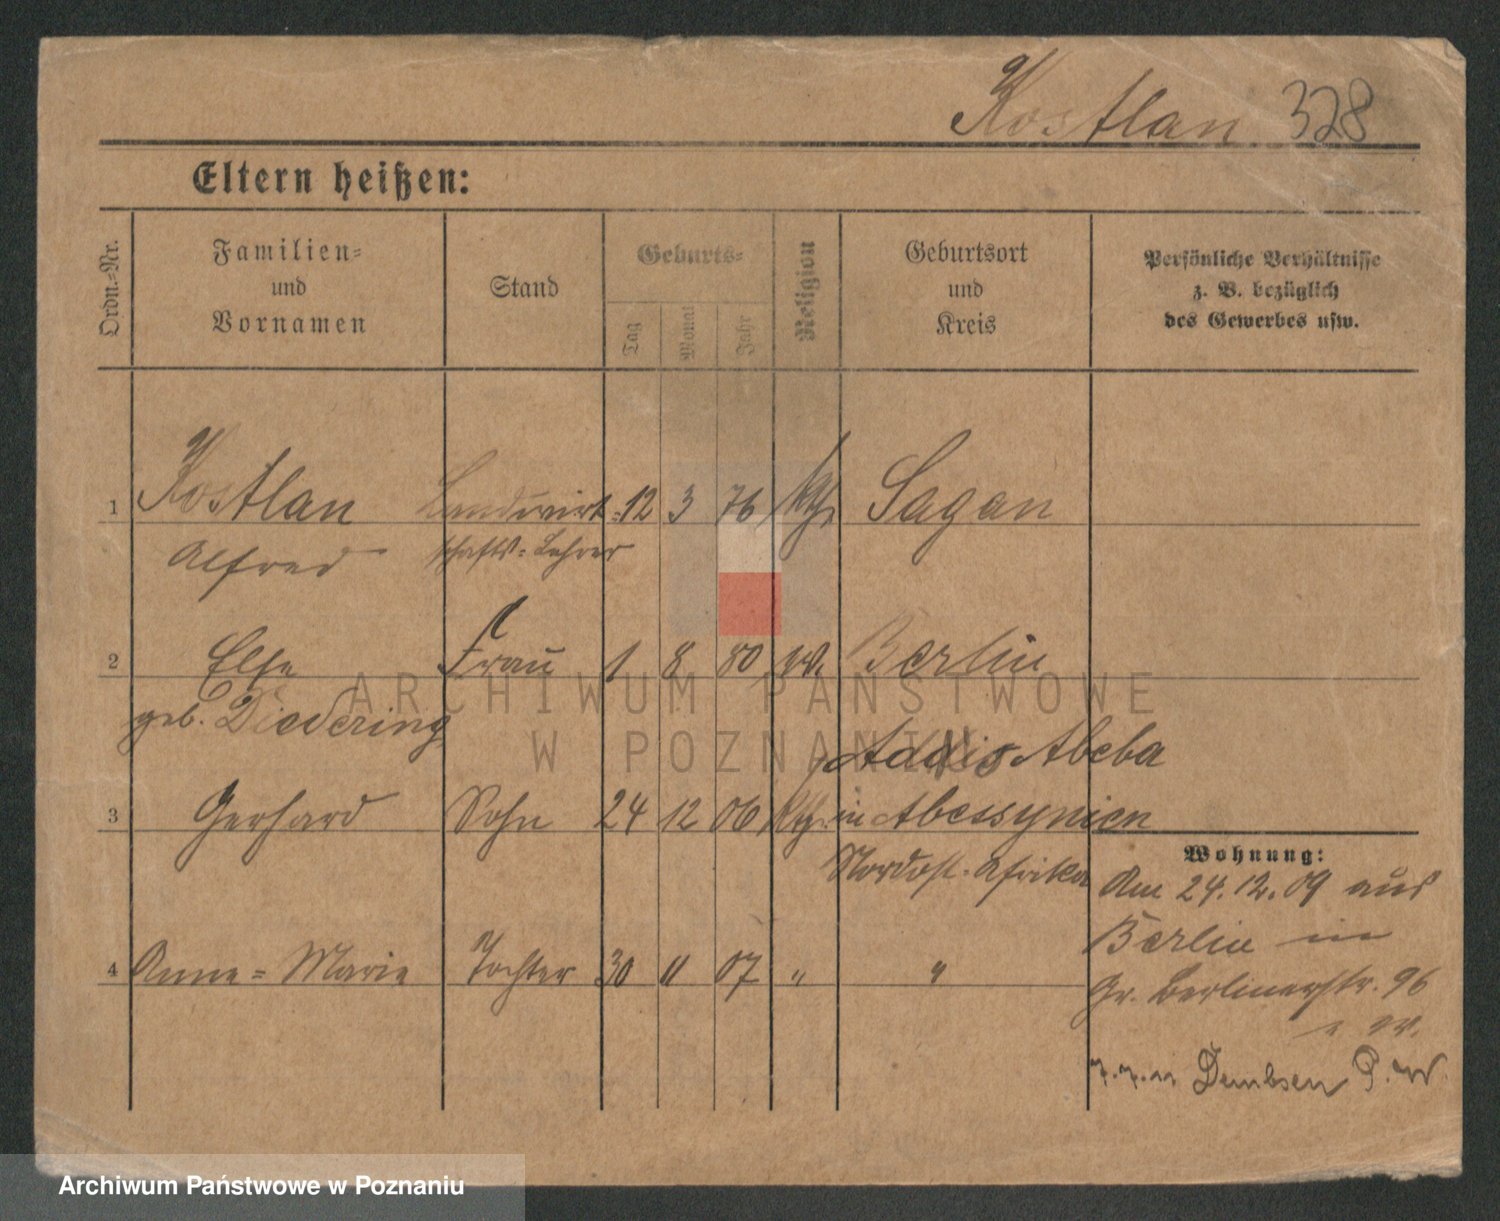 Kostlan 328
Eltern heißen:
Ordn.-Nr.
Familien- und Vornamen
Stand
Geburts-
Tag
Monat
Jahr
Religion
Geburtsort und Kreis
Persönliche Verhältnisse z. B. bezüglich des Gewerbes usw.
1 Kostlan Landwirt- 12 3 76 kth. Sagan
Alfred schafts-Lehrer
2 Else Frau 1 8 80 ev. Berlin
geb. Diedering
Addis Abeba
3 Gerhard Sohn 24 12 06 kth. in Abessynien
Nordost-Afrika
4 Anne-Marie Tochter 30 11 07 " "
Wohnung:
Am 24.12.09 aus
Berlin in
Gr. Berlinerstr. 96
7.7.11 Dembsen P. W
ARCHIWUM PAŃSTWOWE
W POZNANIU
Archiwum Państwowe w Poznaniu